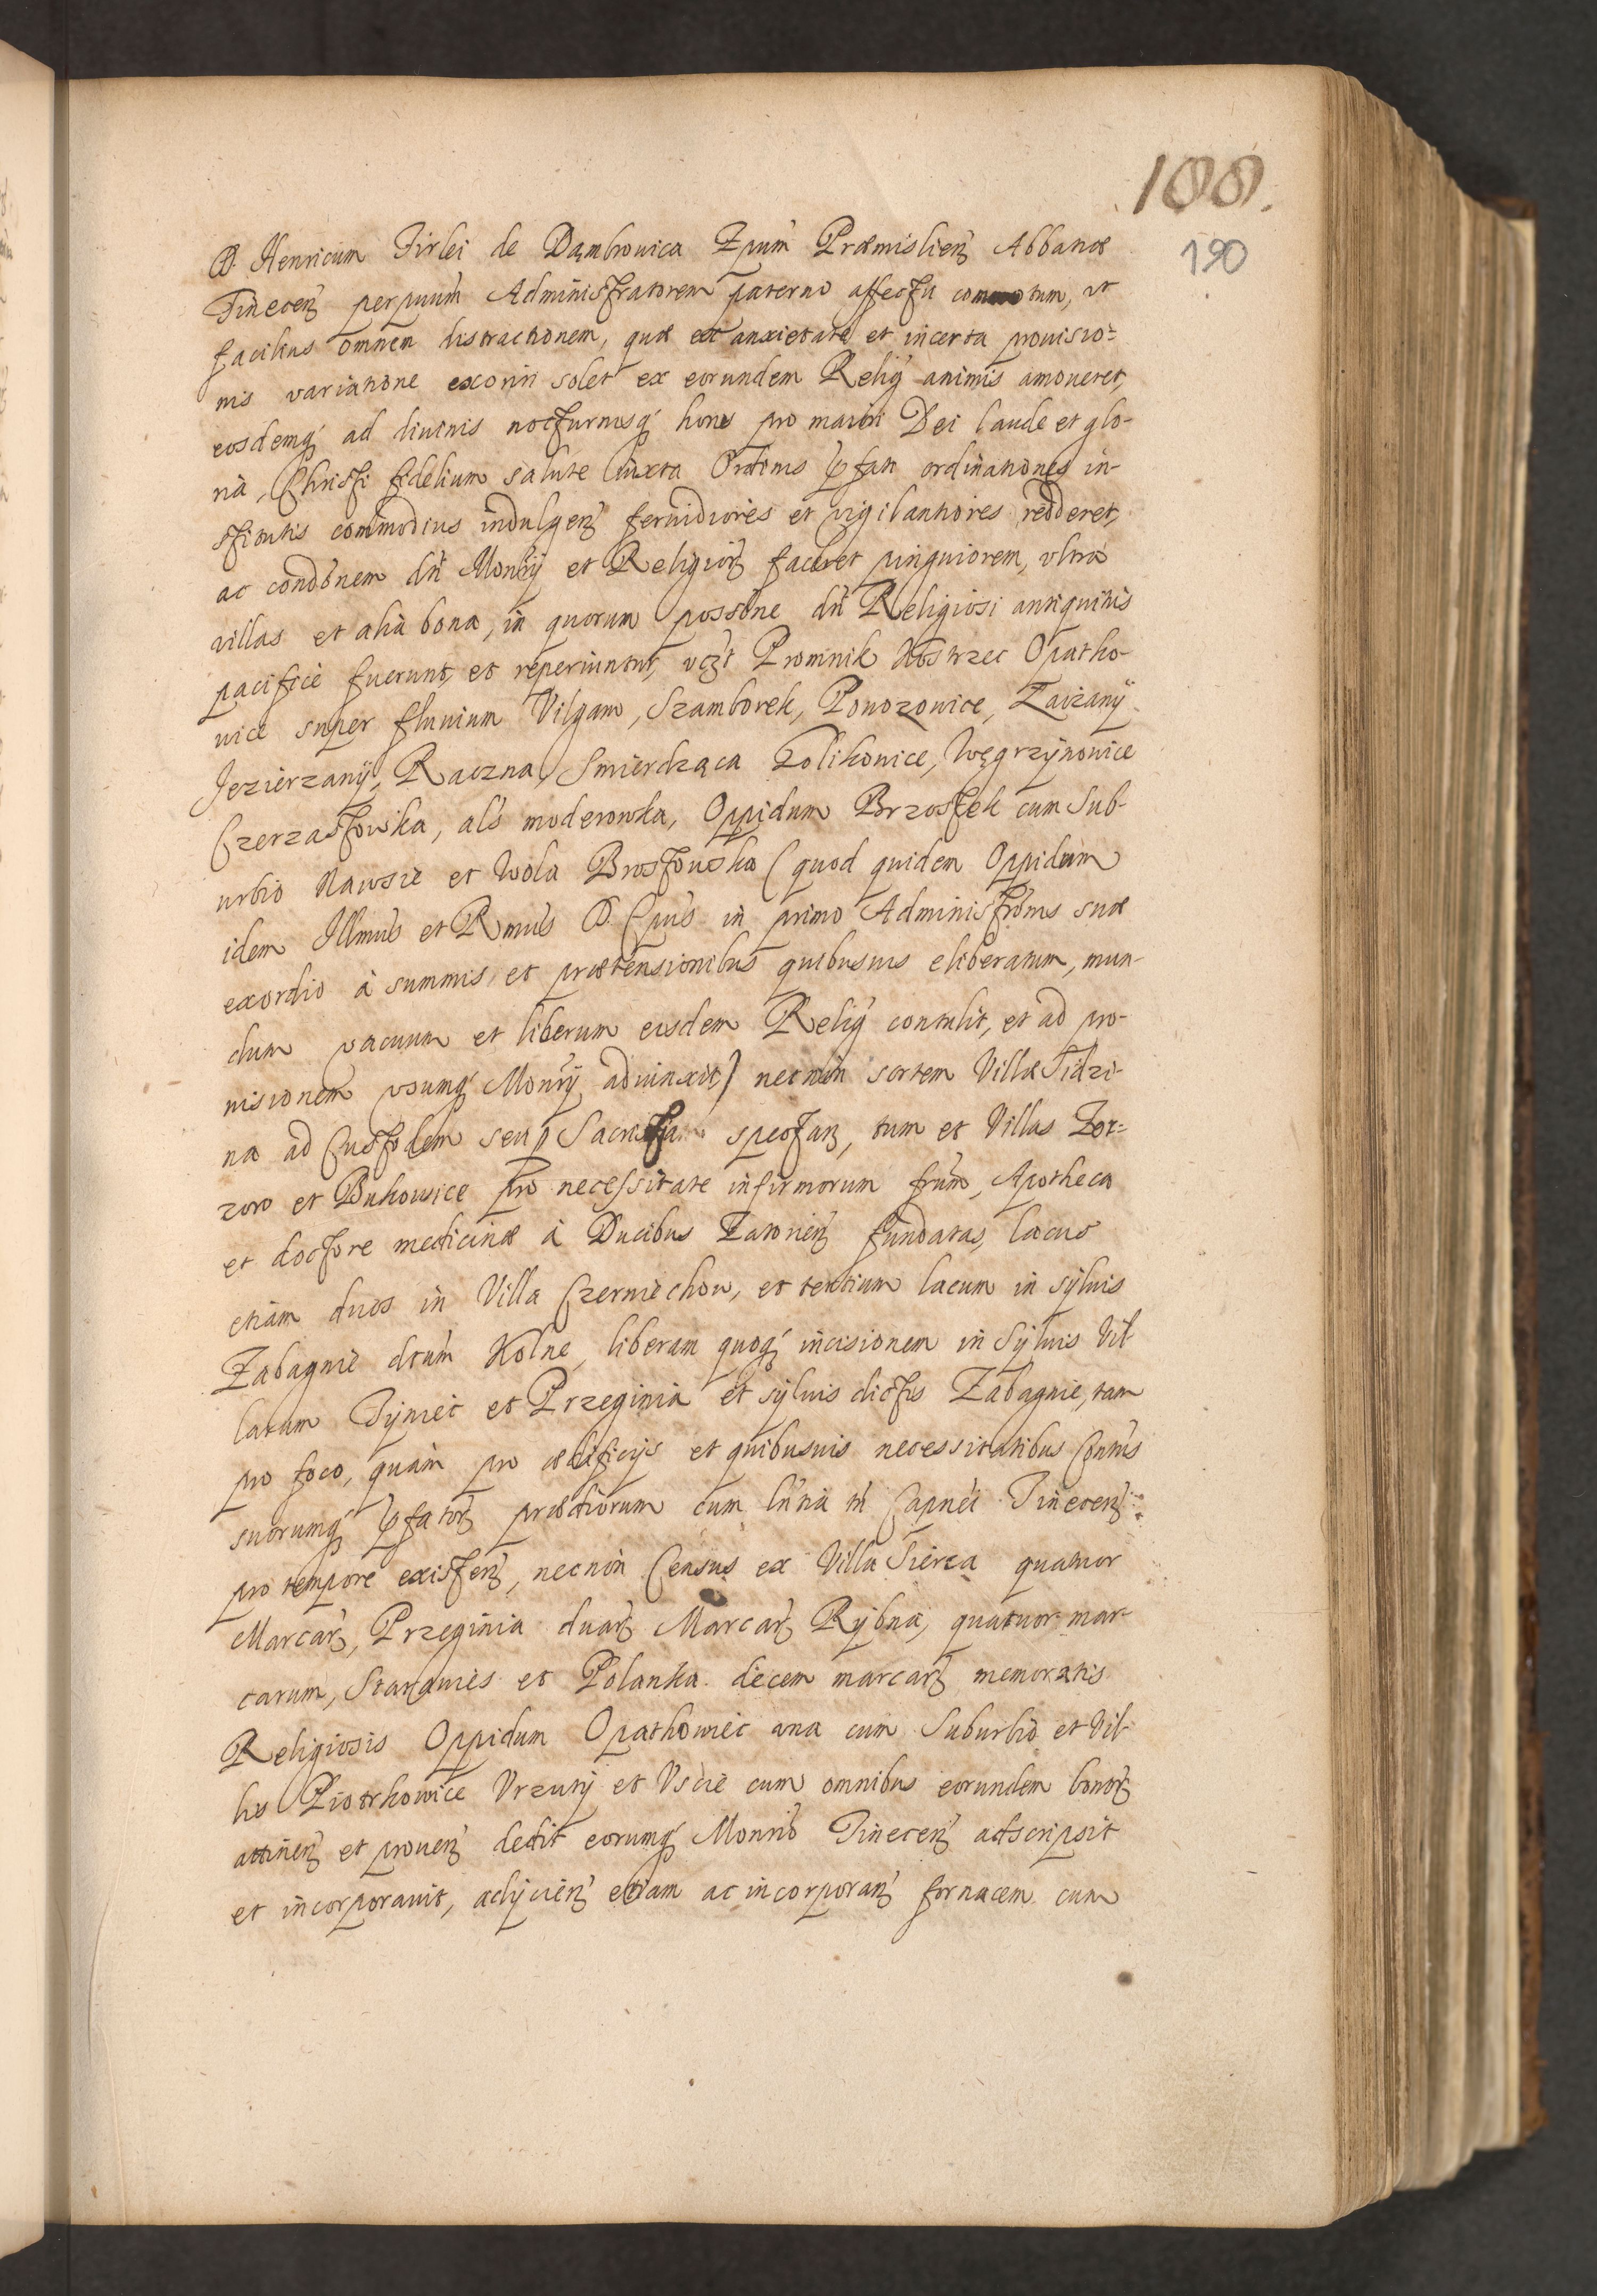 188.
190
D. Henricum Firlei de Dąmbrouica Epum Præmislieñ Abbatiæ
Tineceñ perpuum Administratorem paterno affectu commotum, vt
facilius omnem distractionem, quæ ex anxietate et incerta prouisio-
nis variatione exoriri solet ex eorundem Relig animis amoueret,
eosdemq ad diuinis nocturnisq horis pro maiori Dei laude et glo-
ria, Christi fidelium salute iuxta Ordinis pfati ordinationes in-
stitutis commodius indulgeñ feruidiores et vigilantiores redderet,
ac condõnem dti Monrij et Religior faceret pinguiorem, vltra
villas et alia bona, in quorum possõne dti Religiosi antiquitus
pacifice fuerunt, et reperiuntur, vczt Promnik Kostrzec Opatko-
uice super fluuium Vilgam, Szamborek, Ponozouice, Zaizany
Jezierzanÿ, Raczna, Smierdząca Zolikouice, Węgrzynouice
Czerzastowska, als moderowka, Oppidum Brzostek cum Sub-
urbio Nawsie et Wola Brostouska (quod quidem Oppidum
idem Illmus et Rmus D. Epus in primo Administrõnis suæ
exordio à summis et prætensionibus quibusuis eliberatum, mun-
dum vacuum et liberum eisdem Relig contulit, et ad pro-
uisionem vsumq Monrij aduinxit) necnon sortem Villæ Sidzi-
na ad Custodem seu p Sacrista spectañ, tum et Villas Zor-
zow et Bukowice pro necessitate infirmorum frum, Apotheca
et doctore medicinæ à Ducibus Zatorieñ fundatas, lacus
etiam duos in Villa Czerniechow, et tertium lacum in syluis
Zabagnie dctum Kolne, liberam quoq incisionem in Syluis Vil
larum Tyniec et Przeginia et syluis dictis Zabagnie, tam
pro foco, quàm pro ædificijs et quibusuis necessitatibus Contus
suorumq pfator prædiorum cum lntia tñ Capnei Tineceñ
pro tempore existeñ, necnon Census ex Villa Sierca quatuor
Marcar, Przeginia duar Marcar Rybna, quatuor mar-
carum, Stanguies et Polanka decem marcar memoratis
Religiosis Oppidum Opathowiec vna cum Suburbio et Vil-
lis Piotrkowice Vrzuty et Vscie cum omnibus eorundem bonor
attineñ et proueñ dedit eorumq Monrio Tineceñ adscripsit
et incorporauit, adijcieñ etiam ac incorporañ fornacem cum